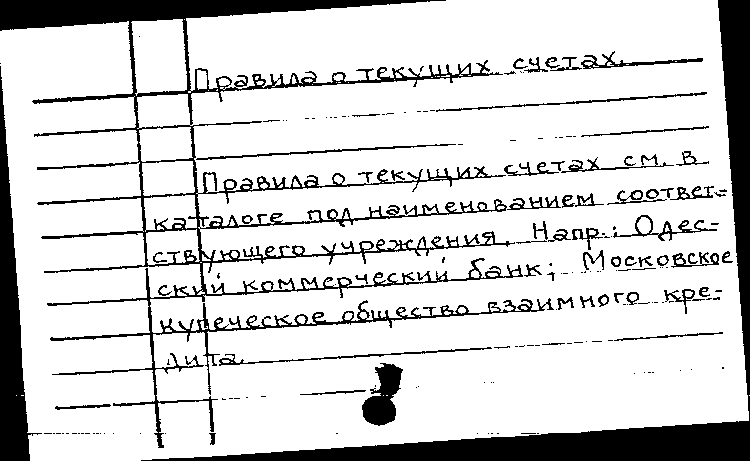 Правила о текущих счетах.
Правила о текущих счетах см. в
каталоге под наименованием соответ-
ствующего учреждения. Напр.: Одес-
ский коммерческий банк; Московское
купеческое общество взаимного кре-
дита.